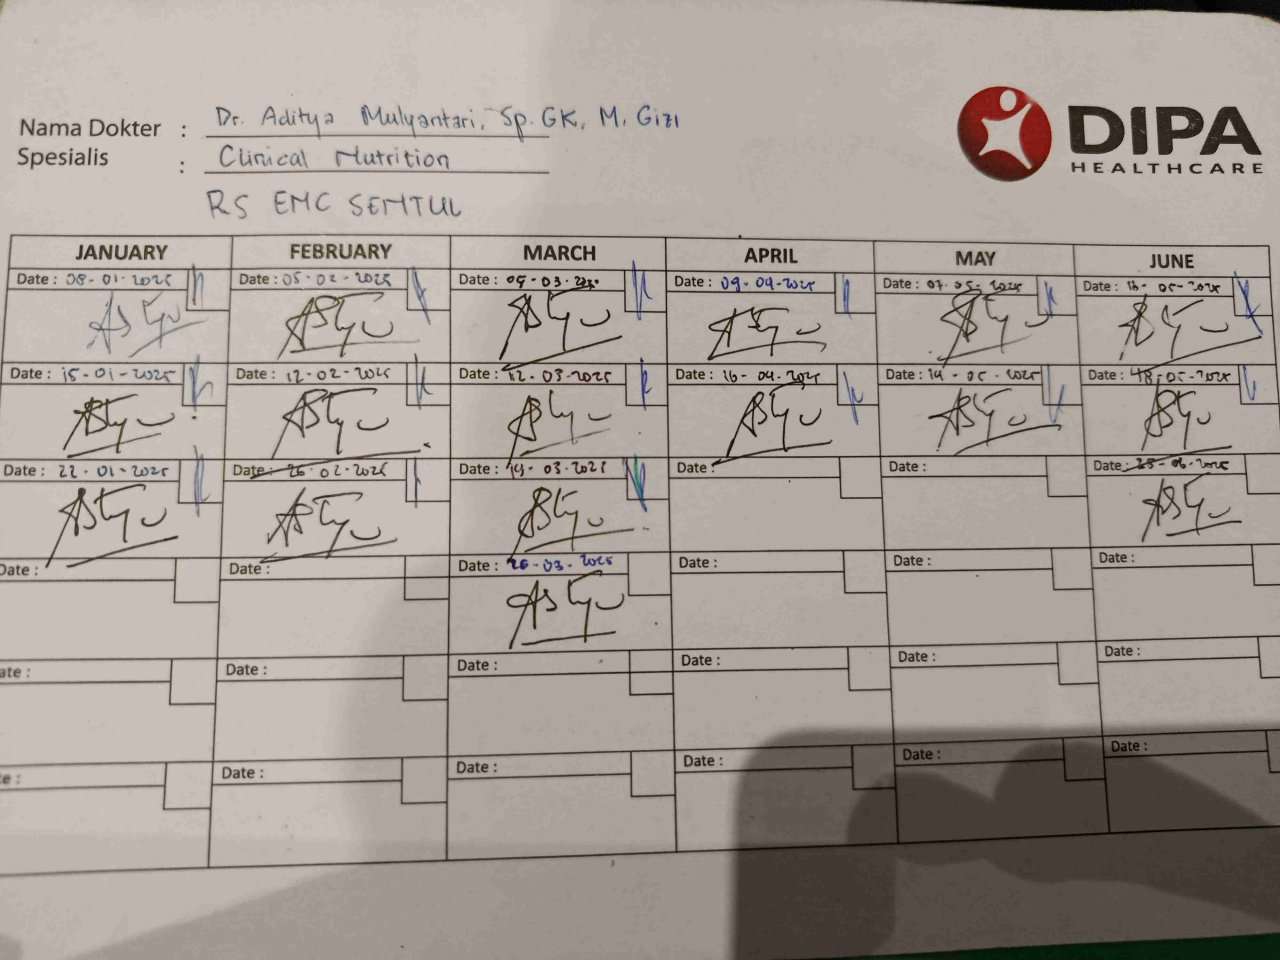 Nama Dokter : Dr. Aditya Mulyantari, Sp.GK, M.Gizi
DIPA
HEALTHCARE
Spesialis : Clinical Nutrition
RS EMC SENTUL
JANUARY FEBRUARY MARCH APRIL MAY JUNE
Date : 08-01-2025 Date : 05-02-2025 Date : 05-03- Date : 09-04-2025 Date : 07-05-2025 Date :
Date : 15-01-2025 Date : 12-02-2025 Date : 12-03-2025 Date : 16-04-2025 Date : 14-05-2025 Date : 18-05-2025
Date : 22-01-2025 Date : 26-02-2025 Date : 19-03-2025 Date : Date : Date : 25-06-2025
Date : Date : Date : 26-03-2025 Date : Date : Date :
ate : Date : Date : Date : Date : Date :
e : Date : Date : Date : Date : Date :